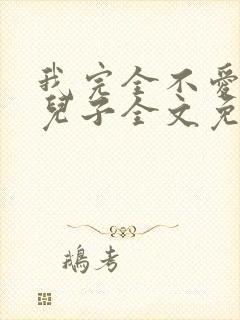 我完全不愛
兒子全文免
鵝考